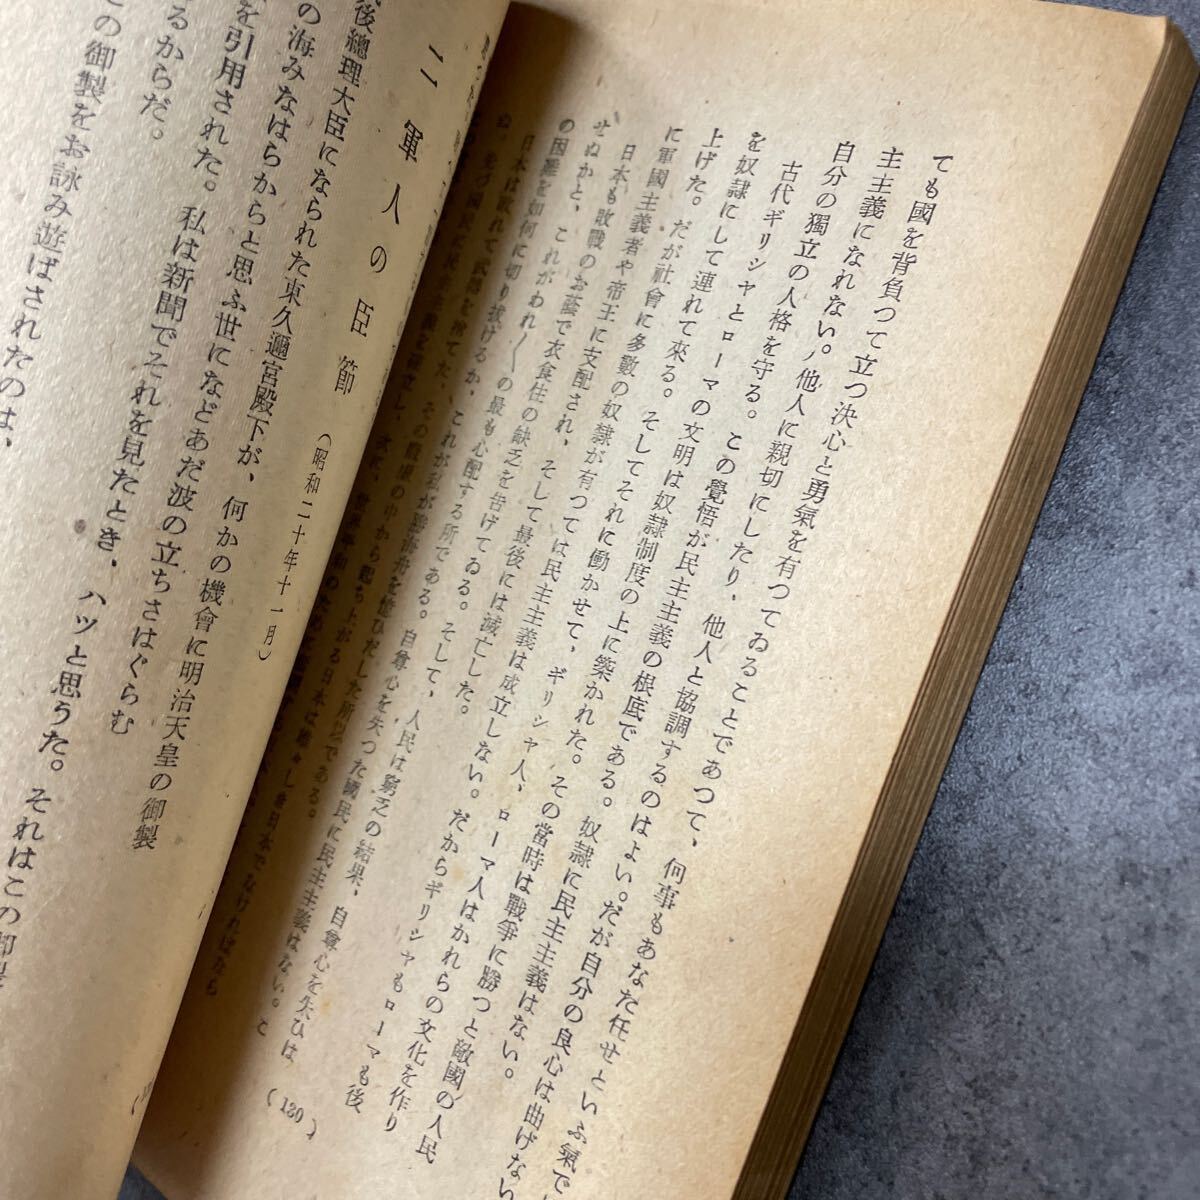 ても國を背負つて立つ決心と勇氣を有つてゐることであつて、何事もあなた任せといふ氣で
主主義になれない。他人に親切にしたり、他人と協調するのはよい。だが自分の良心は曲げない
自分の獨立の人格を守る。この覺悟が民主主義の根底である。奴隷に民主主義はない。
古代ギリシヤとローマの文明は奴隷制度の上に築かれた。その當時は戰爭に勝つと敵國の人民
を奴隷にして連れて來る。そしてそれに働かせて、ギリシャ人、ローマ人はかれらの文化を作り
上げた。だが社會に多數の奴隷が有つては民主主義は成立しない。だからギリシヤもローマも後
に軍國主義者や帝王に支配され、そして最後には滅亡した。
日本も敗戰のお蔭で衣食住の缺乏を告げてゐる。そして、人民は窮乏の結果、自尊心を失ひは
せぬかと、これがわれ〳〵の最も心配する所である。自尊心を失つた國民に民主主義はない。と
の困難を如何に切り拔けるか、これが私が
日本は敗れて武器を捨てた、その
(130)
二 軍人の臣節 (昭和二十年十一月)
後總理大臣になられた東久邇宮殿下が、何かの機會に明治天皇の御製
の海みなはらからと思ふ世になどあだ波の立ちさはぐらむ
を引用された。私は新聞でそれを見たとき、ハツと思うた。それはこの御製
るからだ。
この御製をお詠み遊ばされたのは、